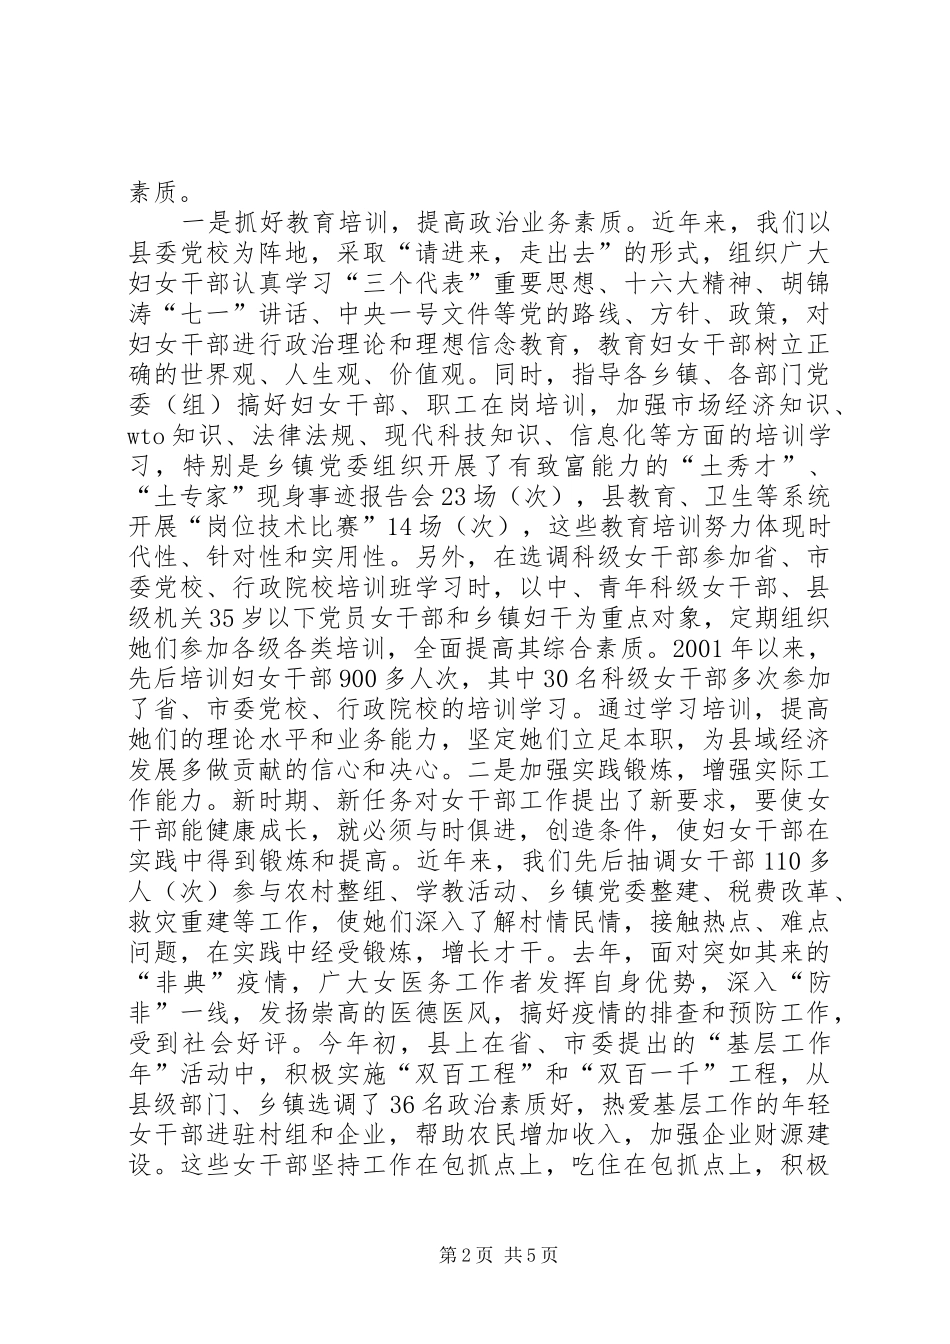 素质。
一是抓好教育培训，提高政治业务素质。近年来，我们以
县委党校为阵地，采取“请进来，走出去”的形式，组织广大
妇女干部认真学习“三个代表”重要思想、十六大精神、胡锦
涛“七一”讲话、中央一号文件等党的路线、方针、政策，对
妇女干部进行政治理论和理想信念教育，教育妇女干部树立正
确的世界观、人生观、价值观。同时，指导各乡镇、各部门党
委（组）搞好妇女干部、职工在岗培训，加强市场经济知识、
wto 知识、法律法规、现代科技知识、信息化等方面的培训学
习，特别是乡镇党委组织开展了有致富能力的“土秀才”、
“土专家”现身事迹报告会 23 场（次），县教育、卫生等系统
开展“岗位技术比赛”14 场（次），这些教育培训努力体现时
代性、针对性和实用性。另外，在选调科级女干部参加省、市
委党校、行政院校培训班学习时，以中、青年科级女干部、县
级机关 35 岁以下党员女干部和乡镇妇干为重点对象，定期组织
她们参加各级各类培训，全面提高其综合素质。2001 年以来，
先后培训妇女干部 900 多人次，其中 30 名科级女干部多次参加
了省、市委党校、行政院校的培训学习。通过学习培训，提高
她们的理论水平和业务能力，坚定她们立足本职，为县域经济
发展多做贡献的信心和决心。二是加强实践锻炼，增强实际工
作能力。新时期、新任务对女干部工作提出了新要求，要使女
干部能健康成长，就必须与时俱进，创造条件，使妇女干部在
实践中得到锻炼和提高。近年来，我们先后抽调女干部 110 多
人（次）参与农村整组、学教活动、乡镇党委整建、税费改革、
救灾重建等工作，使她们深入了解村情民情，接触热点、难点
问题，在实践中经受锻炼，增长才干。去年，面对突如其来的
“非典”疫情，广大女医务工作者发挥自身优势，深入“防
非”一线，发扬崇高的医德医风，搞好疫情的排查和预防工作，
受到社会好评。今年初，县上在省、市委提出的“基层工作
年”活动中，积极实施“双百工程”和“双百一千”工程，从
县级部门、乡镇选调了 36 名政治素质好，热爱基层工作的年轻
女干部进驻村组和企业，帮助农民增加收入，加强企业财源建
设。这些女干部坚持工作在包抓点上，吃住在包抓点上，积极
第 2 页 共 5 页